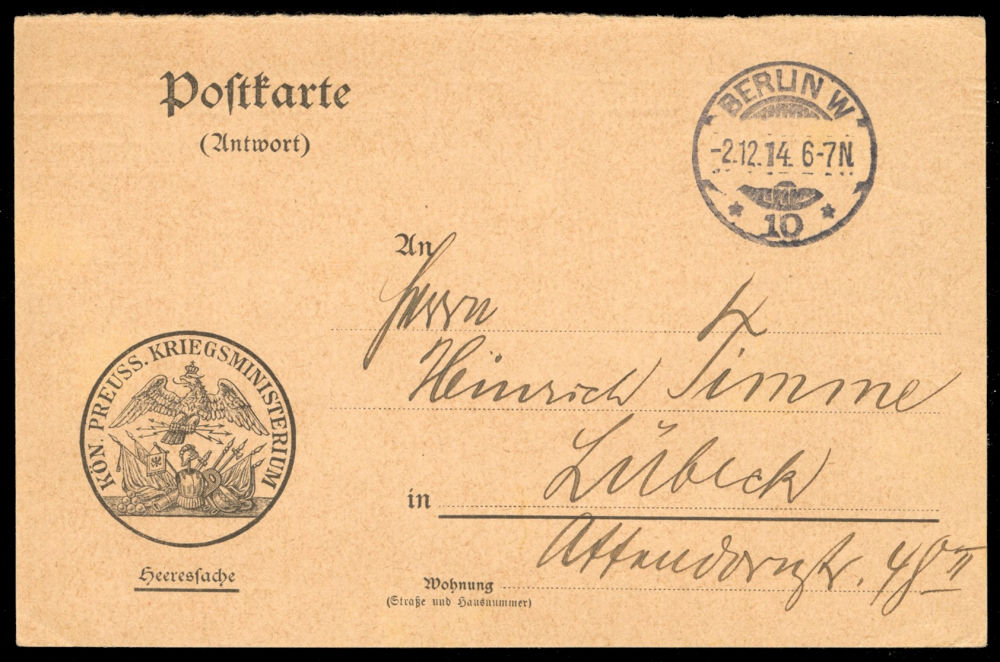 Postkarte
(Antwort)
BERLIN W
-2.12.14. 6-7N.
* 10 *
An
Herrn
Heinrich Timme
in Lübeck
Wohnung Attendornstr.
(Straße und Hausnummer)
KÖN. PREUSS. KRIEGSMINISTERIUM
Heeressache